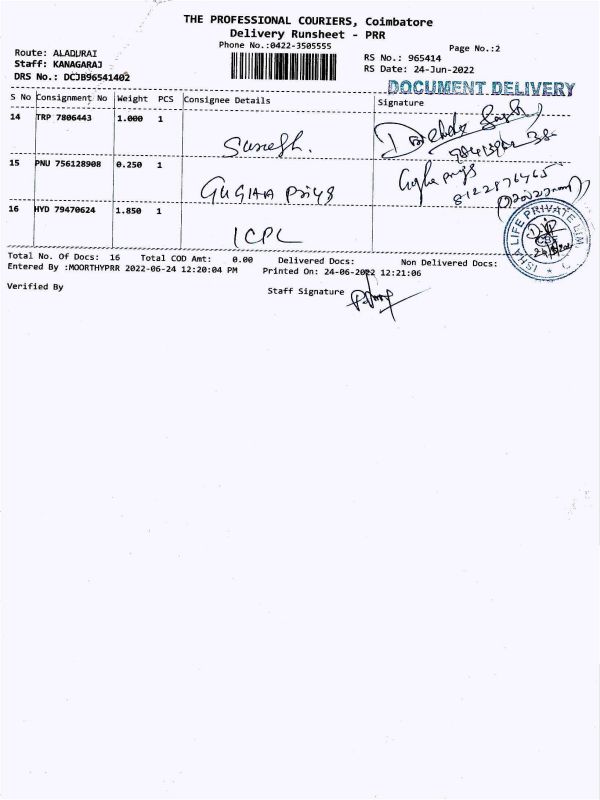 THE PROFESSIONAL COURIERS, Coimbatore
Delivery Runsheet - PRR
Phone No.:0422-3505555
Page No.:2
Route: ALADURAI
Staff: KANAGARAJ
DRS No.: DCJB96541402
RS No.: 965414
RS Date: 24-Jun-2022
DOCUMENT DELIVERY
S No Consignment No Weight PCS Consignee Details Signature
14 TRP 7806443 1.000 1 Suresh.
15 PNU 756128908 0.250 1 GUGHAA Priya
8122876465
16 HYD 79470624 1.850 1 ICPL
ISHA LIFE PRIVATE LIM
CBE
Total No. Of Docs: 16 Total COD Amt: 0.00 Delivered Docs: Non Delivered Docs:
Entered By :MOORTHYPRR 2022-06-24 12:20:04 PM Printed On: 24-06-2022 12:21:06
Verified By
Staff Signature